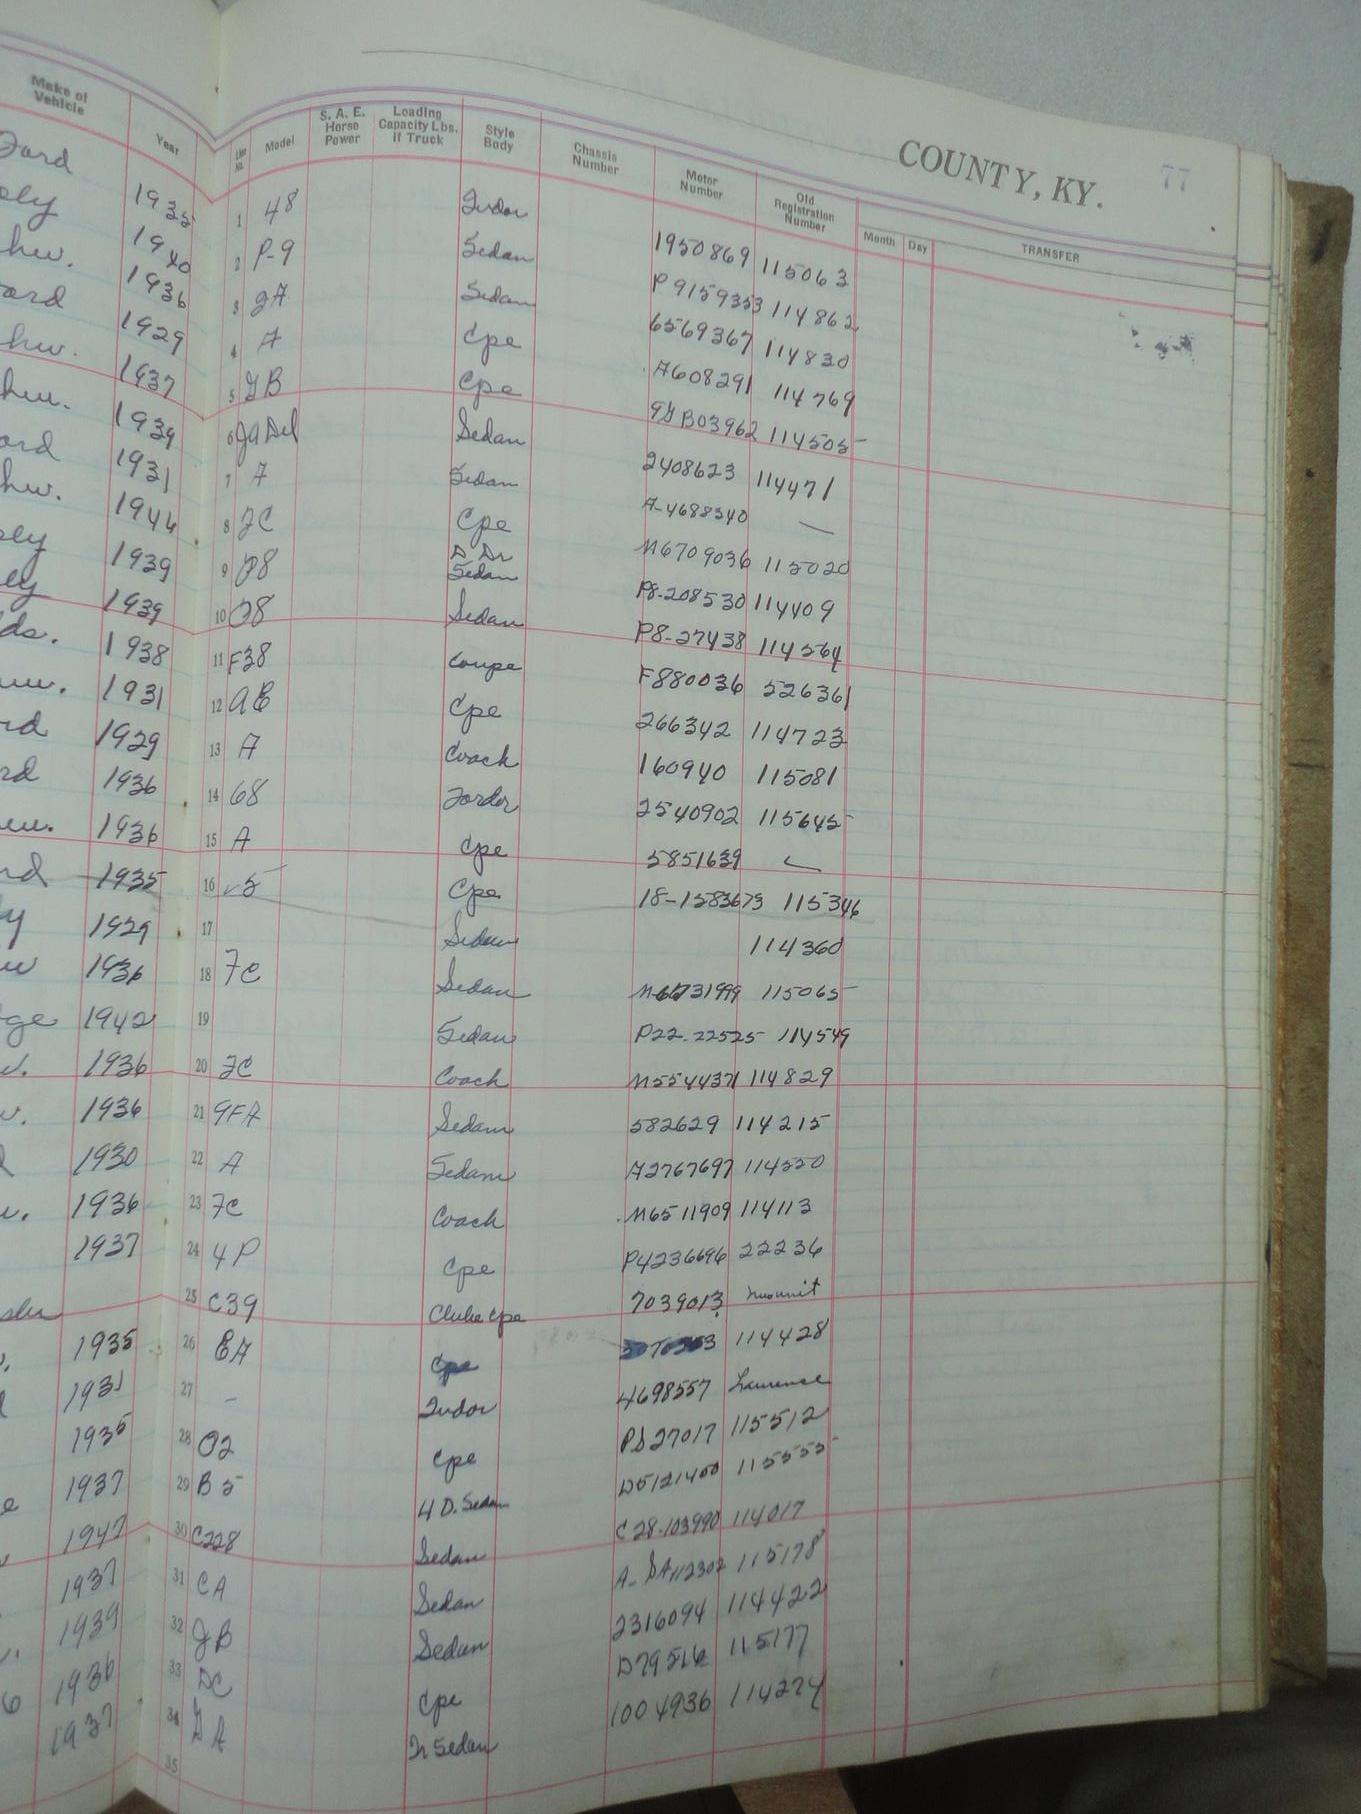 COUNTY, KY. 77
Make of Vehicle Year Line No. Model S. A. E. Horse Power Loading Capacity Lbs. if Truck Style Body Chassis Number Motor Number Old Registration Number Month Day TRANSFER
Ford 1935 1 48 Tudor 1950869 115063
1940 2 P-9 Sedan P9159353 114862
hw. 1936 3 Sedan 6569367 114830
ord 1929 4 A Cpe A608291 114769
hw. 1937 5 GB Cpe 114505
hw. 1939 6 Sedan 2408623 114471
ord 1931 7 A Sedan A-4688340 —
hw. 1944 8 Cpe M6709036 115020
1939 9 P8 Sedan P8-208530 114409
ey 1939 10 Sedan P8-27438 114564
ds. 1938 11 F38 Coupe F880036 526361
1931 12 Cpe 266342 114723
rd 1929 13 A Coach 160940 115081
rd 1936 14 68 Fordor 2540902 115645
1936 15 A Cpe 5851639
rd 1935 16 Cpe 18-1583673 115346
y 1929 17 Sedan 114360
w 1936 18 FC Sedan 115065
ge 1942 19 Sedan P22.22525 114549
1936 20 FC Coach M5544371 114829
1936 21 9FA Sedan 582629 114215
1930 22 A Sedan A2767697 114550
1936 23 FC Coach M6511909 114113
1937 24 4P Cpe P4236696 22236
25 C39 Club Cpe 7039013
1935 26 EA Cpe 114428
1931 27 - Tudor 4698557 Lawrence
1935 28 Cpe 115512
1937 29 B5 4 D. Sedan D5121400 115555
1947 30 C228 Sedan C28-103990 114017
1937 31 CA Sedan 115178
1939 32 JB Sedan 2316094 114422
1936 33 DC Cpe D79516 115177
1937 34 GA Tr Sedan 1004936 114274
35